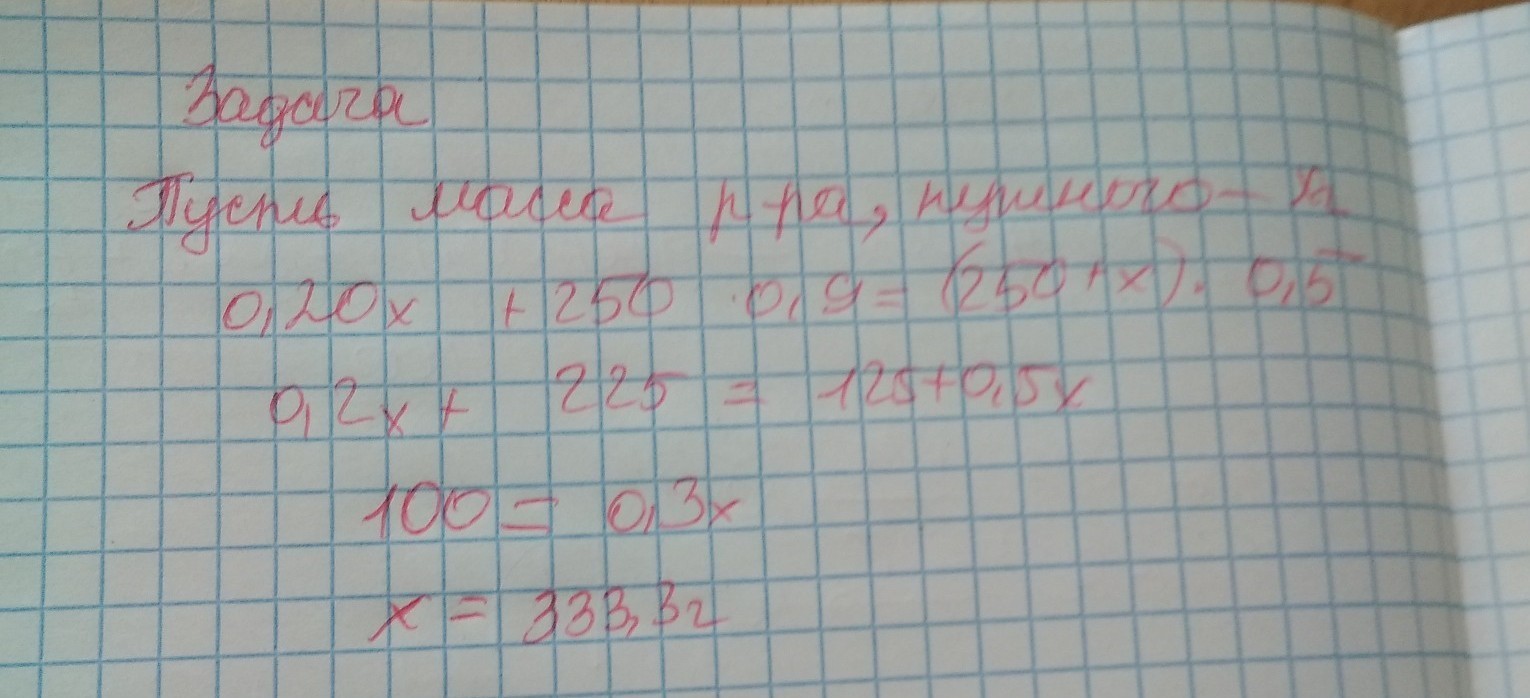 Задача
Пусть масса р-ра, нужного - х г
0,20x + 250 · 0,9 = (250 + x) · 0,5
0,2x + 225 = 125 + 0,5x
100 = 0,3x
x = 333,3г